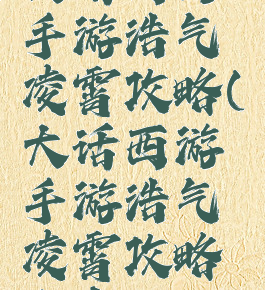 手游浩气
凌霄攻略(
大话西游
手游浩气
凌霄攻略